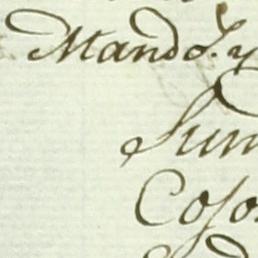 Mando. y
Sum
Coso